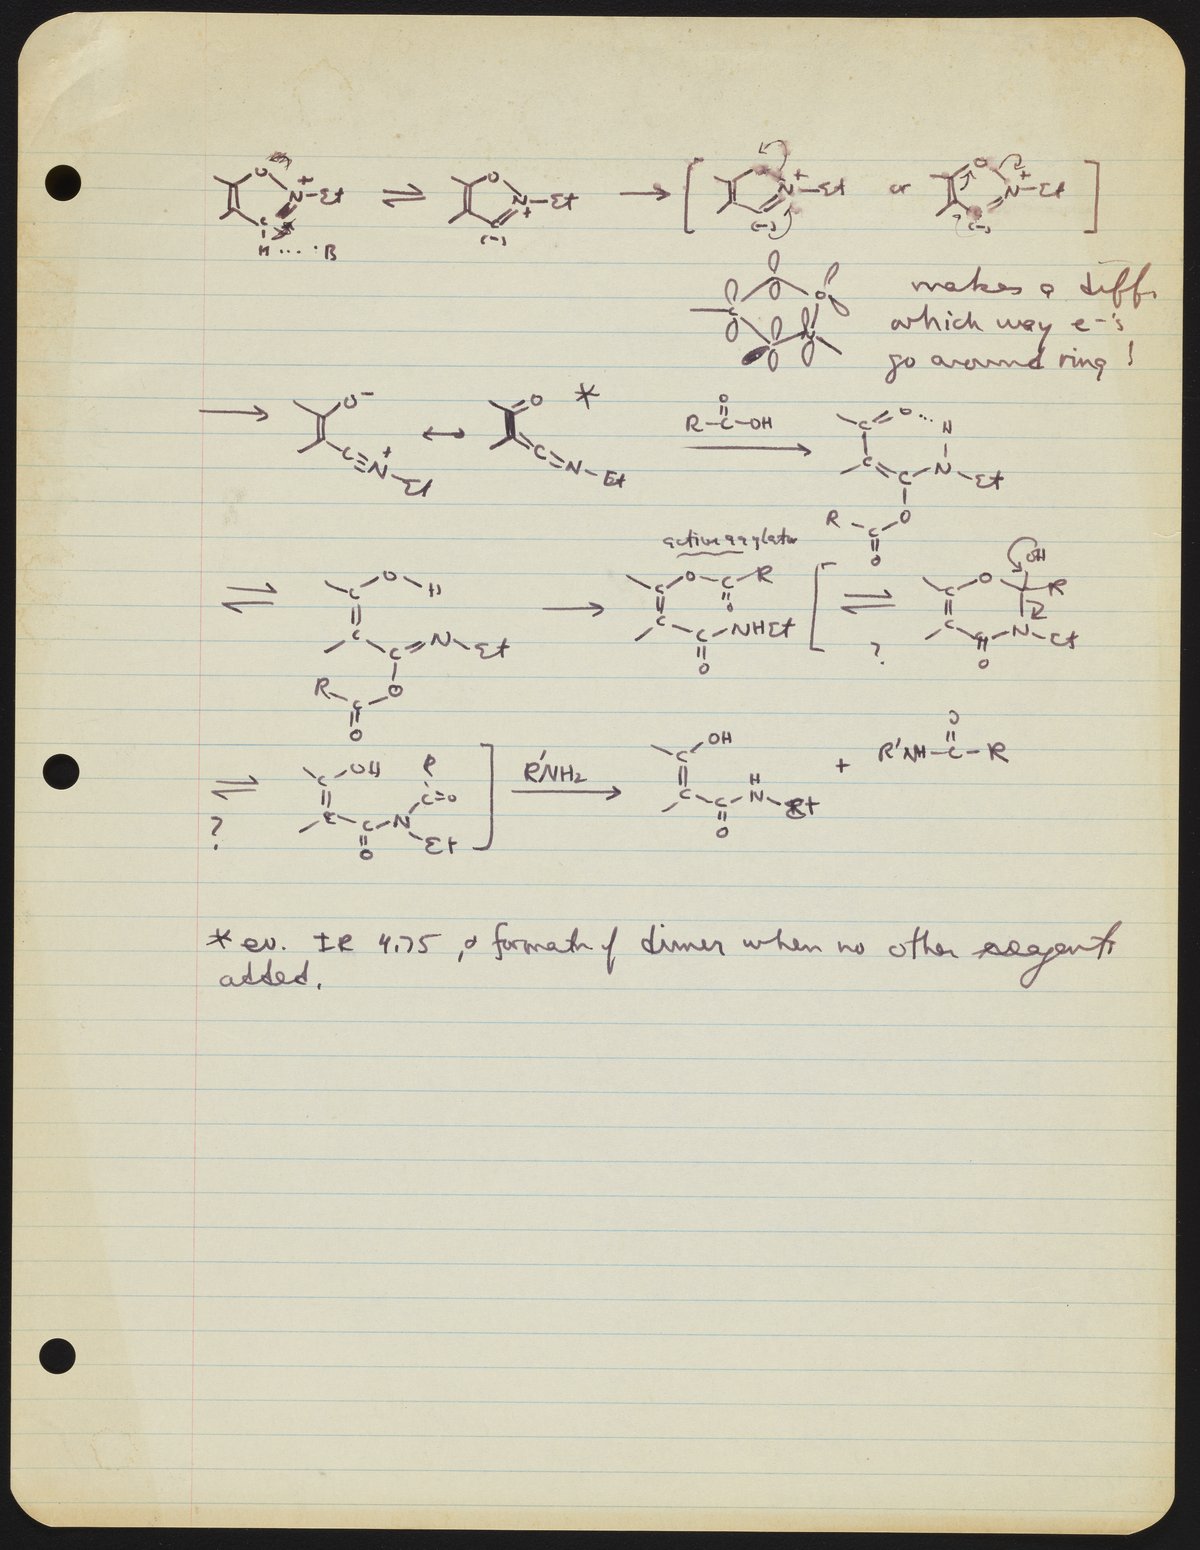 O N + Et ⇌ O N + Et → [ N + Et or O N + Et ]
C H ···· B (-) (-) (-)
makes a diff.
which way e-'s
go around ring !
→ O⁻ C≡N⁺ Et ↔ O C=N Et * R-C-OH O → C O ··· H
C C N Et
O
R C O
active acylator
⇌ C O H → C O C R O [ ⇌ C O OH R
C C N Et C C NHEt O ? C C N Et O
R C O O
⇌ C OH R C=O ] R'NH₂ → C OH + R'NH-C-R O
? C C N Et O C C N H Et O
* ev. IR 4.75, & formatn of dimer when no other reagents
added.